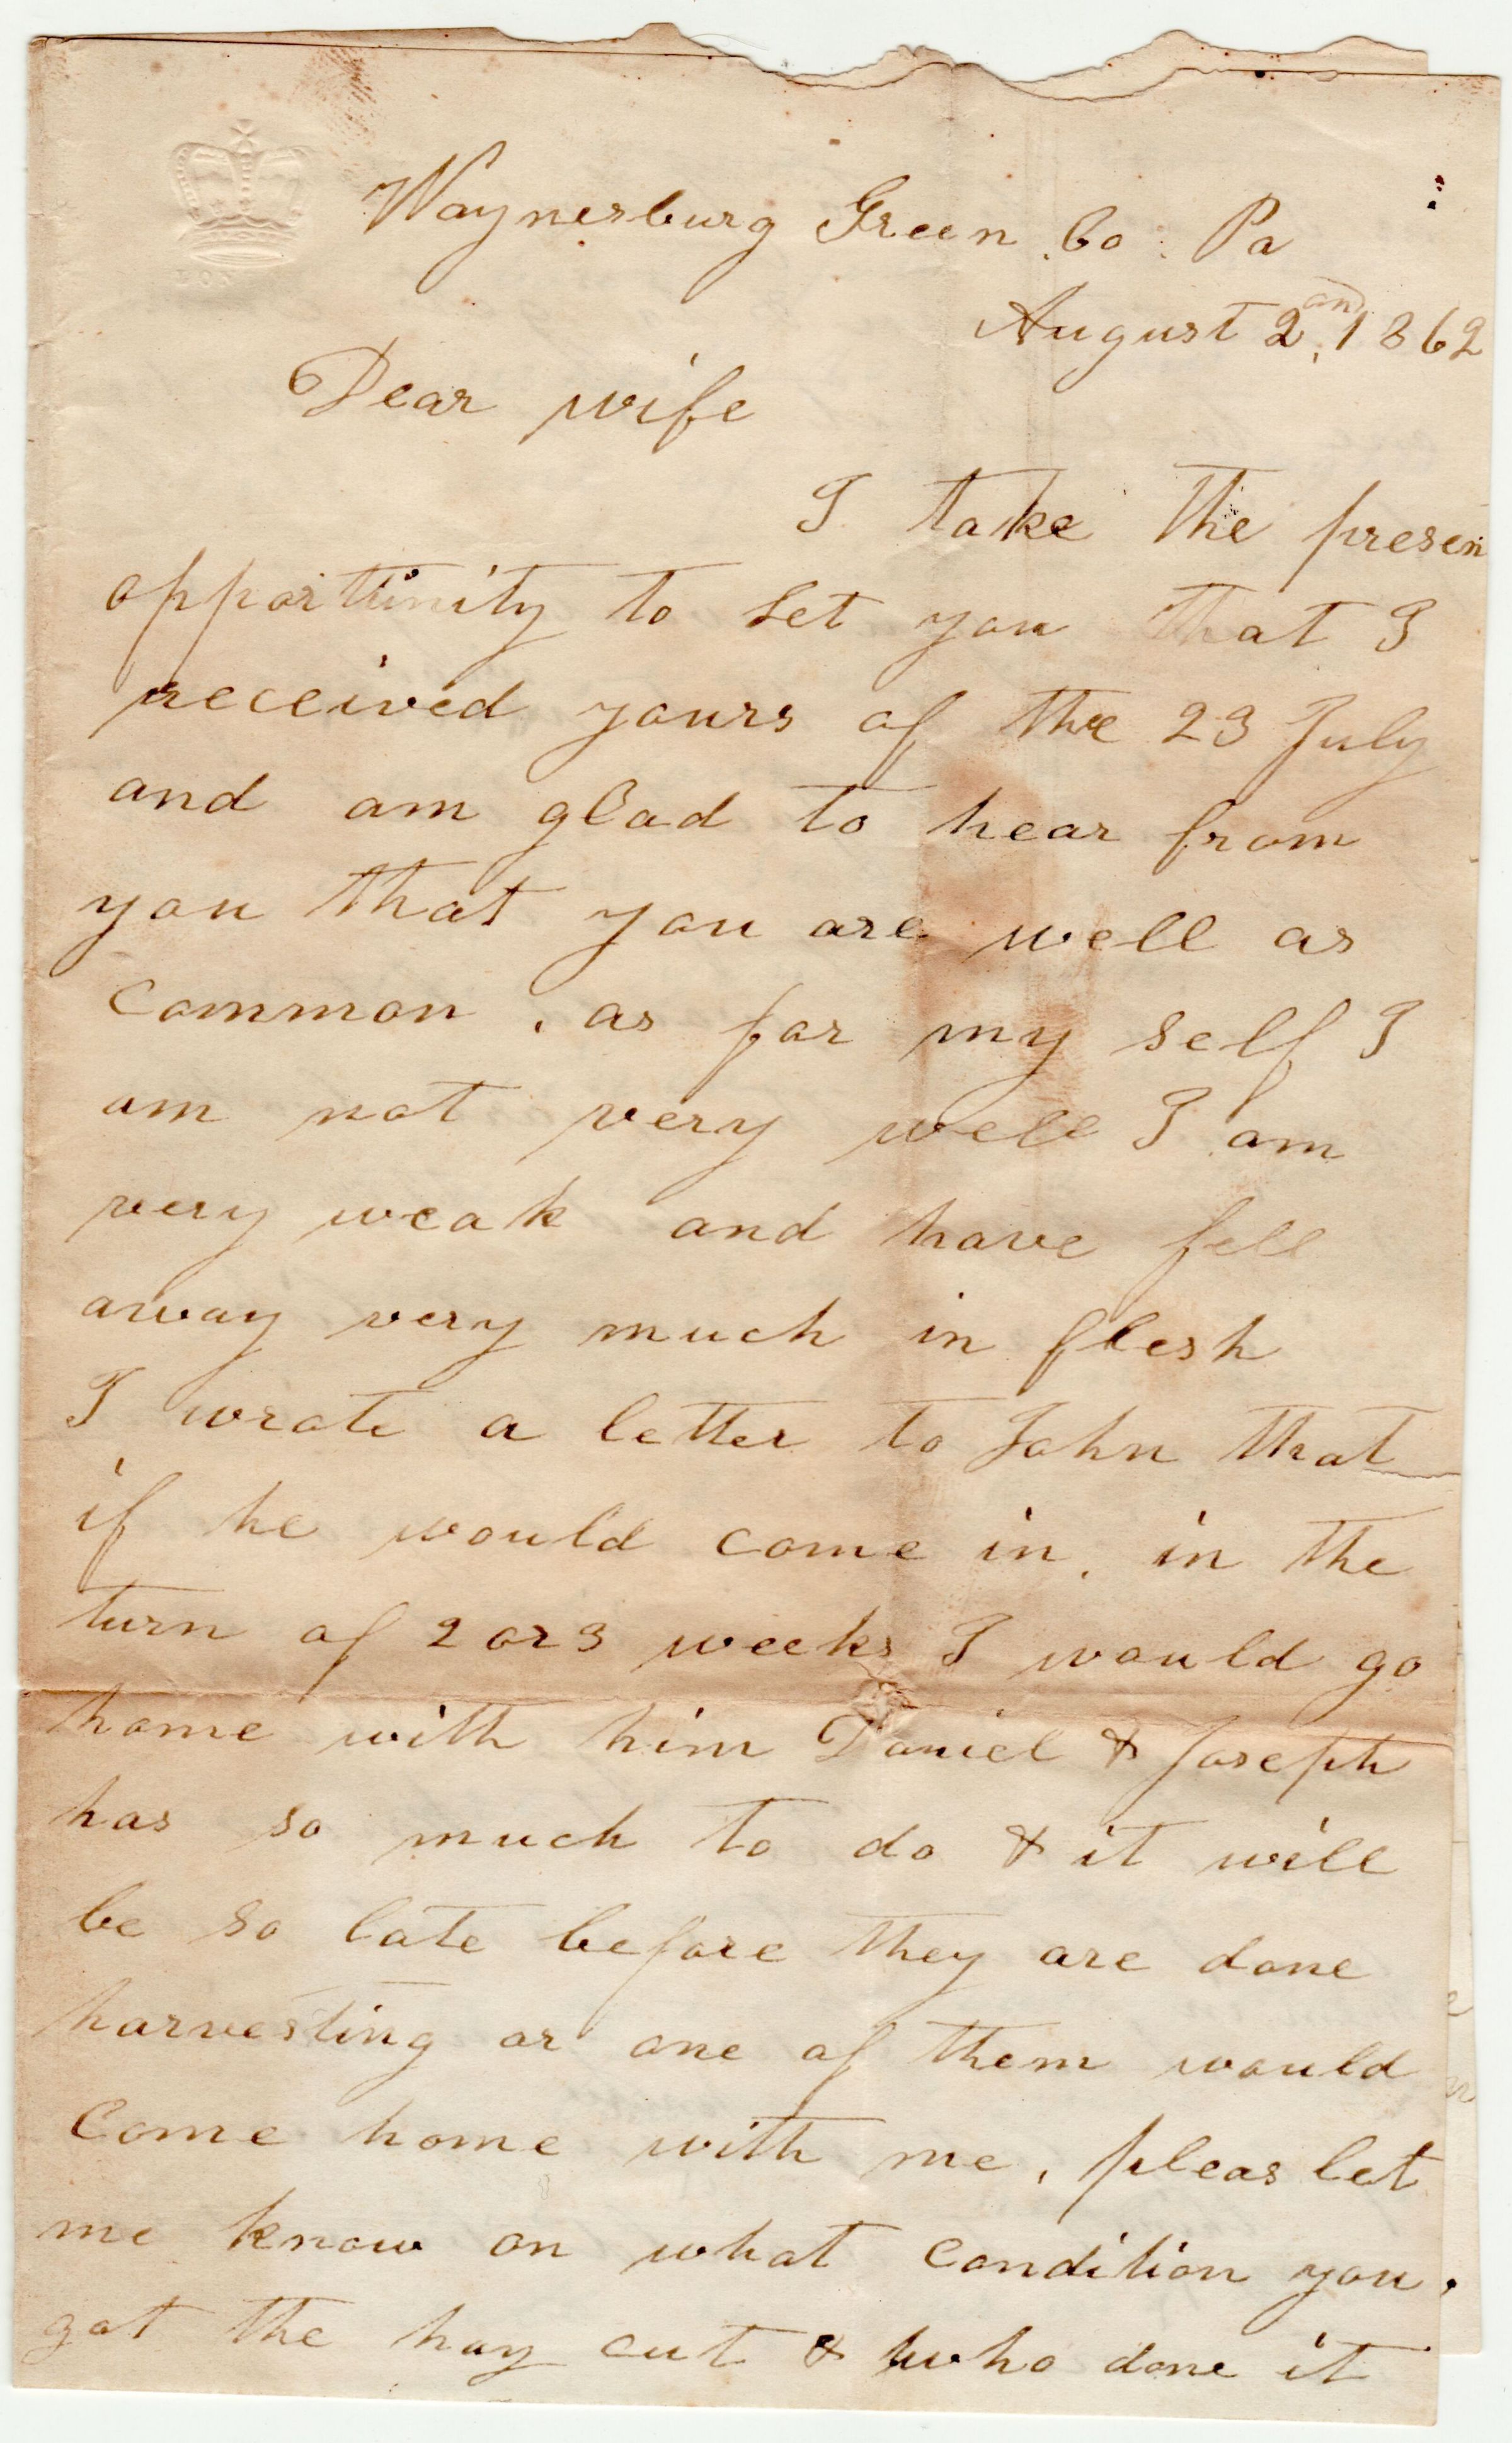 Waynesburg Green Co. Pa
August 2nd, 1862
Dear wife
I take the presen
opportunity to let you that I
received yours of the 23 July
and am glad to hear from
you that you are well as
common, as for my self I
am not very well I am
very weak and have fell
away very much in flesh
I wrote a letter to John that
if he would come in, in the
turn of 2 or 3 weeks I would go
home with him Daniel & Joseph
has so much to do & it will
be so late before they are done
harvesting or one of them would
Come home with me, pleas let
me know on what condition you.
got the hay cut & who done it